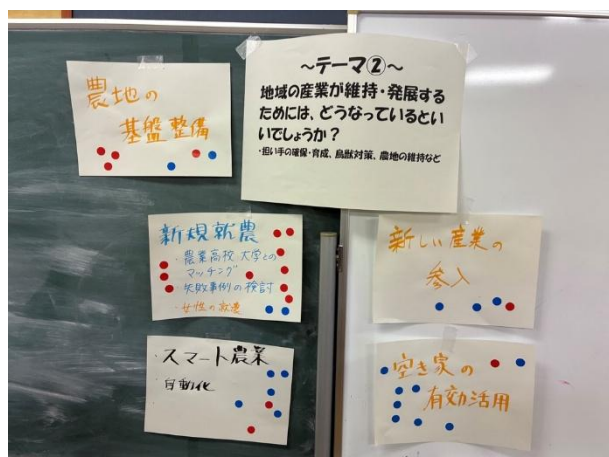 ～テーマ②～
地域の産業が維持・発展する
ためには、どうなっているとい
いでしょうか？
・担い手の確保・育成、鳥獣対策、農地の維持など
農地の
基盤整備
新規就農
・農業高校 大学との
マッチング
・失敗事例の検討
・女性の
新しい産業の
参入
・スマート農業
自動化
・空き家の
有効活用